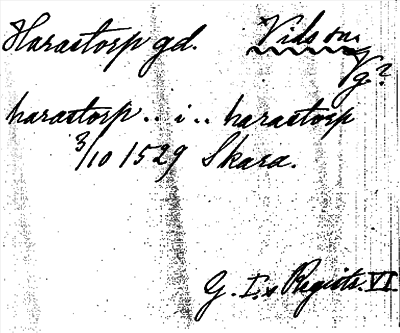 Harastorp gd. Vids sn.
Vg?
harastorp .. i .. harastorp
3/10 1529 Skara.
G. I:s Registr. VI.